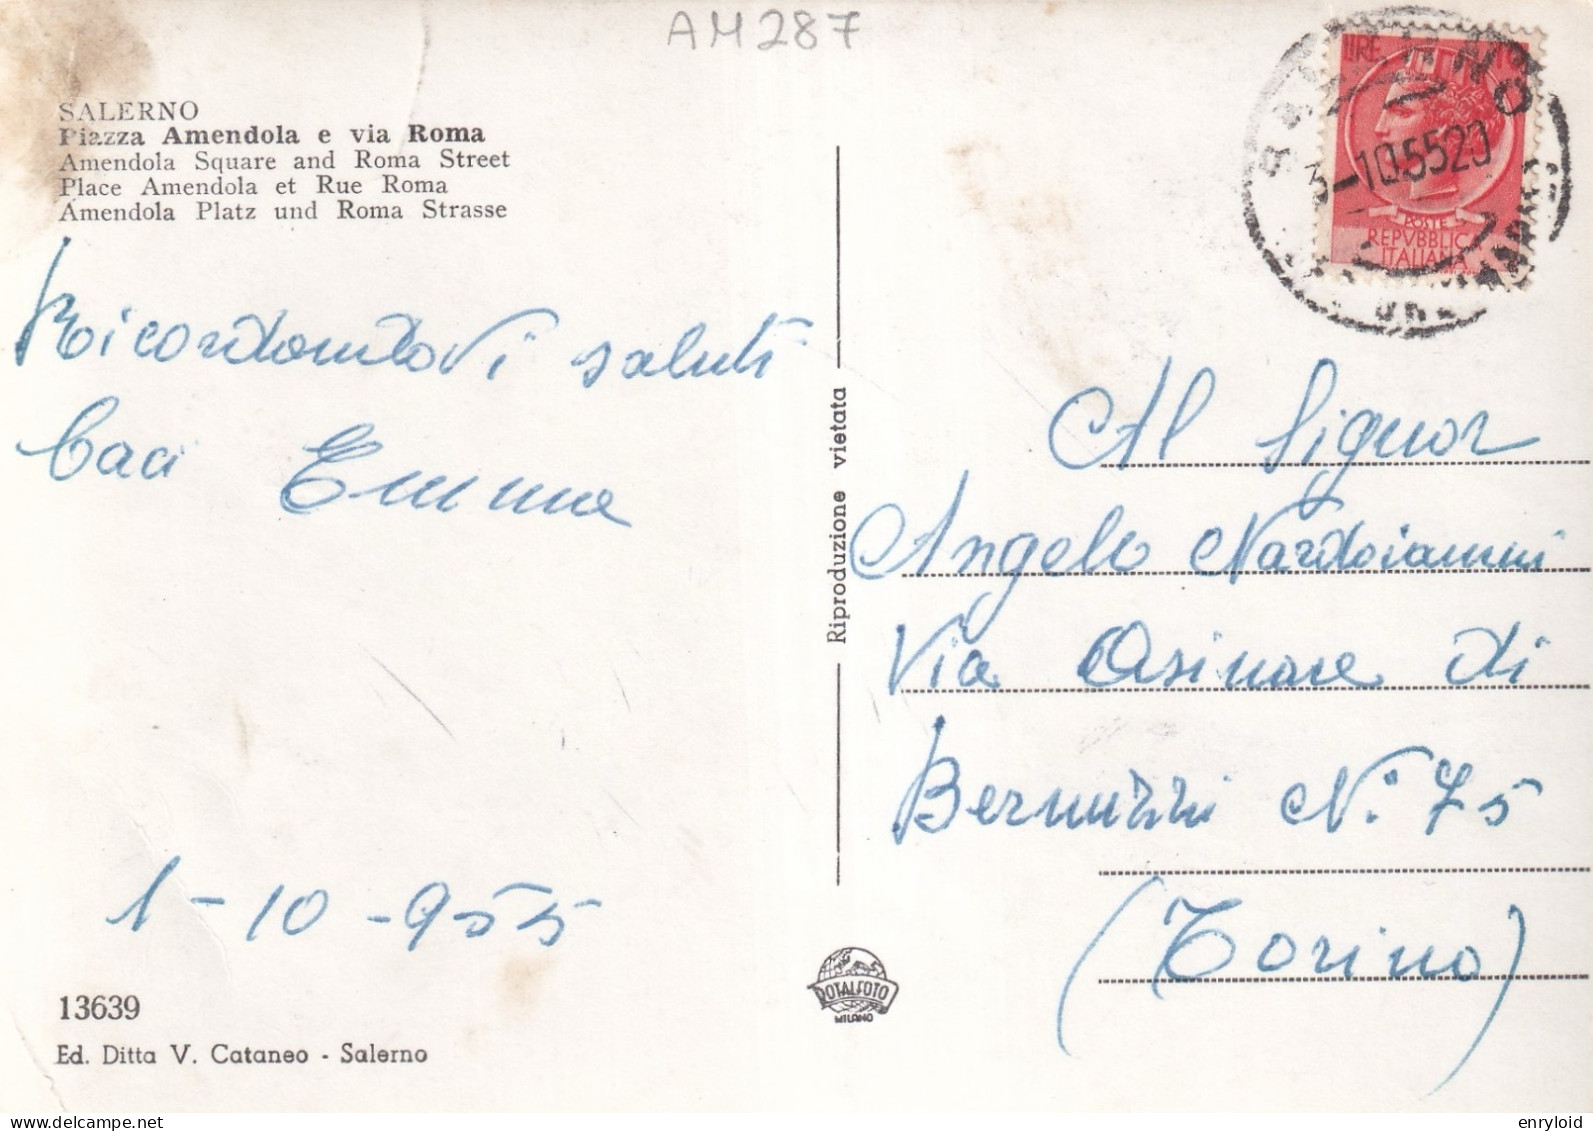 AM287
SALERNO
Piazza Amendola e via Roma
Amendola Square and Roma Street
Place Amendola et Rue Roma
Amendola Platz und Roma Strasse
LIRE
3-10.55 20
POSTE
REPVBBLICA
ITALIANA
RicordandoVi saluti
Caci Emma
1-10-955
13639
Ed. Ditta V. Cataneo - Salerno
Riproduzione vietata
ROTALFOTO
MILANO
Al Signor
Angelo Nardoianni
Via Asinare di
Bernuzzi N. 75
(Torino)
enryloid